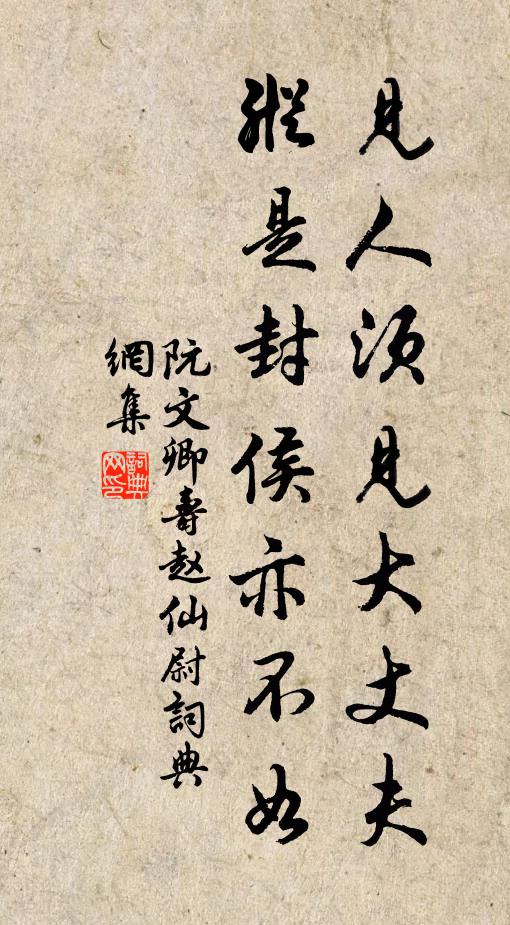 見人須見大丈夫
縱是封侯亦不如
阮文卿壽赵仙尉詞典
網集
詞典
网印